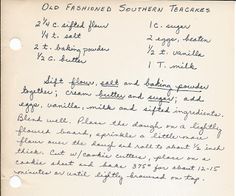 OLD FASHIONED SOUTHERN TEACAKES
2 1/4 c. sifted flour 1 c. sugar
1/4 t. salt 2 eggs, beaten
2 t. baking powder 1/2 t. vanilla
1/2 c. butter 1 T. milk
Sift flour, salt and baking powder
together; cream butter and sugar, add
eggs, vanilla, milk and sifted ingredients.
Blend well. Place the dough on a lightly
floured board, sprinkle a little more
flour over the dough and roll to about 1/2 inch
thick. Cut w/cookie cutters, place on a
cookie sheet and bake @ 375° for about 12-15
minutes or until lightly browned on top.